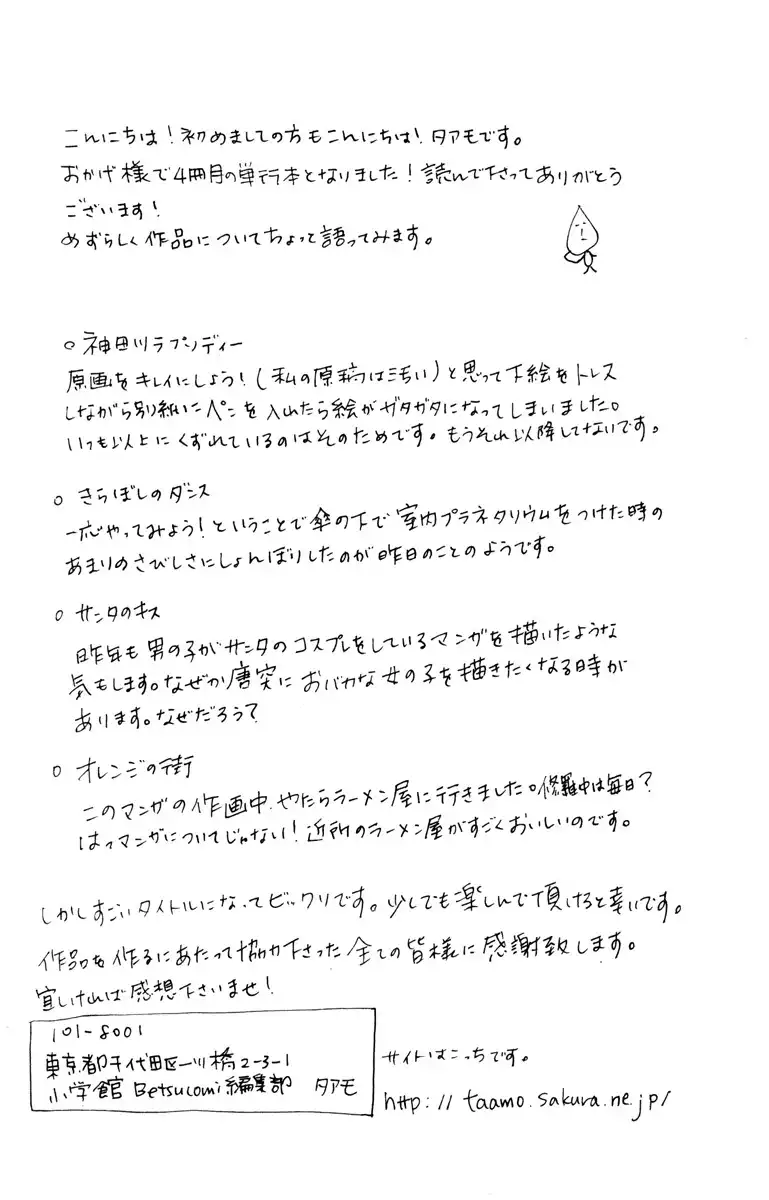 こんにちは!初めましての方もこんにちは!タアモです。
おかげ様で4冊目の単行本となりました!読んで下さってありがとう
ございます!
めずらしく作品についてちょっと語ってみます。
○ 神田川ラプンツェル
原画をキレイにしよう!(私の原稿はきちゃない)と思って下絵をトレス
しながら別紙にペンを入れたら絵がガタガタになってしまいました。
いつも以上にくずれているのはそのためです。もうそれ以降してないです。
○ きらぼしのダンス
一応やってみよう!ということで傘の下で室内プラネタリウムをつけた時の
あまりのさびしさにしょんぼりしたのが昨日のことのようです。
○ サンタのキス
昨年も男の子がサンタのコスプレをしているマンガを描いたような
気もします。なぜか唐突におバカな女の子を描きたくなる時が
あります。なぜだろう?
○ オレンジの街
このマンガの作画中、やたらラーメン屋に行きました。修羅中は毎日?
はっマンガについてじゃない!近所のラーメン屋がすごくおいしいのです。
しかしすごいタイトルになってビックリです。少しでも楽しんで頂けると幸いです。
作品を作るにあたって協力下さった全ての皆様に感謝致します。
宜しければ感想下さいませ!
101-8001
東京都千代田区一ツ橋2-3-1
小学館 Betsucomi編集部 タアモ
サイトはこっちです。
http://taamo.sakura.ne.jp/